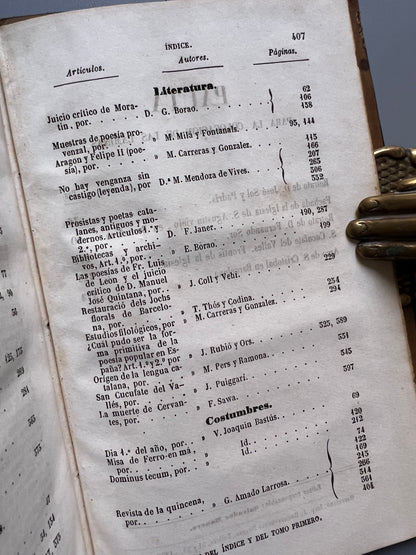 ÍNDICE.
407
Artículos.
Autores.
Páginas.
Literatura.
Juicio crítico de Mora-
tin, por. . . . . . D. G. Borao.
62
106
458
Muestras de poesía pro-
venzal, por. . . . . » M. Milá y Fontanals.
95, 444
Aragon y Felipe II (poe-
sía), por. . . . . » M. Carreras y Gonzalez.
415
No hay venganza sin
castigo (leyenda), por D.ª M. Mendoza de Vives.
466
207
265
506
552
Prosistas y poetas cata-
lanes, antiguos y mo-
dernos. Artículos 4.º y
2.º, por. . . . . D. F. Janer.
490, 257
Bibliotecas y archi-
vos, Art. 4.º, por. . » E. Borao.
199
Las poesías de Fr. Luis
de Leon y el juicio
crítico de D. Manuel
José Quintana, por. » J. Coll y Vehí.
229
Restauració dels Jochs
florals de Barcelo-
na, por. . . . . » T. Thós y Codina.
254
Estudios filológicos, por » M. Carreras y Gonzalez.
294
¿Cuál pudo ser la for-
ma primitiva de la
poesía popular en Es-
paña? Art. 4.º y 2.º por » J. Rubió y Ors.
525, 589
Orígen de la lengua ca-
talana, por. . . . » M. Pers y Ramona.
551
San Cucufate del Va-
llés, por. . . . . » J. Puiggarí.
545
La muerte de Cervan-
tes, por. . . . . » F. Sawa.
597
Costumbres.
Dia 4.º del año, por. . » V. Joaquin Bastús.
69
Misa de Ferro-en má . » Id. . .
420
Dominus tecum, por. . » Id. . .
212
Revista de la quincena,
por. . . . . . » G. Amado Larrosa.
74
422
169
245
266
514
561
404
DEL ÍNDICE Y DEL TOMO PRIMERO.